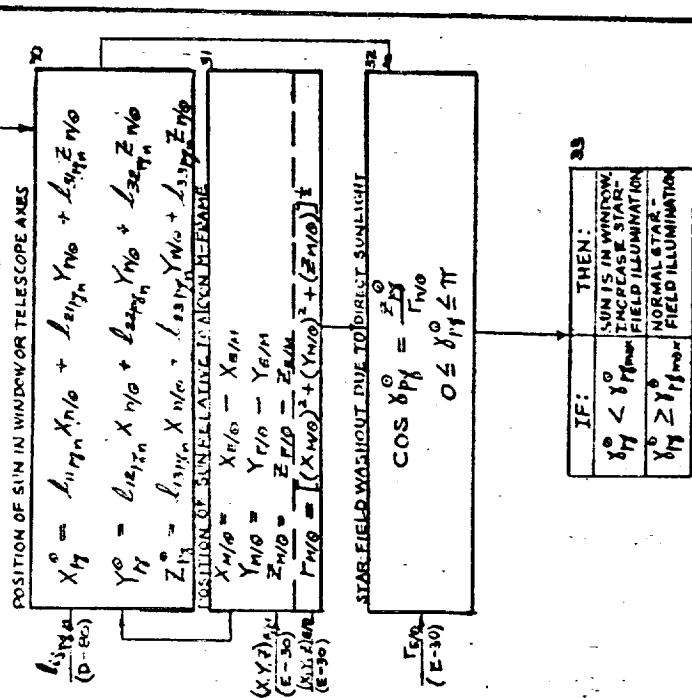 POSITION OF SUN IN WINDOW OR TELESCOPE AXES
30
X⊙pγ = l11pγn XM/⊙ + l21pγn YM/⊙ + l31pγn ZM/⊙
Y⊙pγ = l12pγn XM/⊙ + l22pγn YM/⊙ + l32pγn ZM/⊙
Z⊙pγ = l13pγn XM/⊙ + l23pγn YM/⊙ + l33pγn ZM/⊙
(D-80)
POSITION OF SUN RELATIVE TO MOON M-FRAME
31
XM/⊙ = XE/⊙ - XE/M
YM/⊙ = YE/⊙ - YE/M
ZM/⊙ = ZE/⊙ = ZE/M
rM/⊙ = [(XM/⊙)² + (YM/⊙)² + (ZM/⊙)]½
(E-30)
(E-30)
STAR FIELD WASHOUT DUE TO DIRECT SUNLIGHT
32
COS γ⊙pγ = Z⊙pγ / rM/⊙
0 ≤ γ⊙pγ ≤ π
rE/⊙
(E-30)
33
IF: THEN:
γ⊙pγ < γ⊙pγmax SUN IS IN WINDOW.
INCREASE STAR-
FIELD ILLUMINATION
γ⊙pγ ≥ γ⊙pγmax NORMAL STAR-
FIELD ILLUMINATION